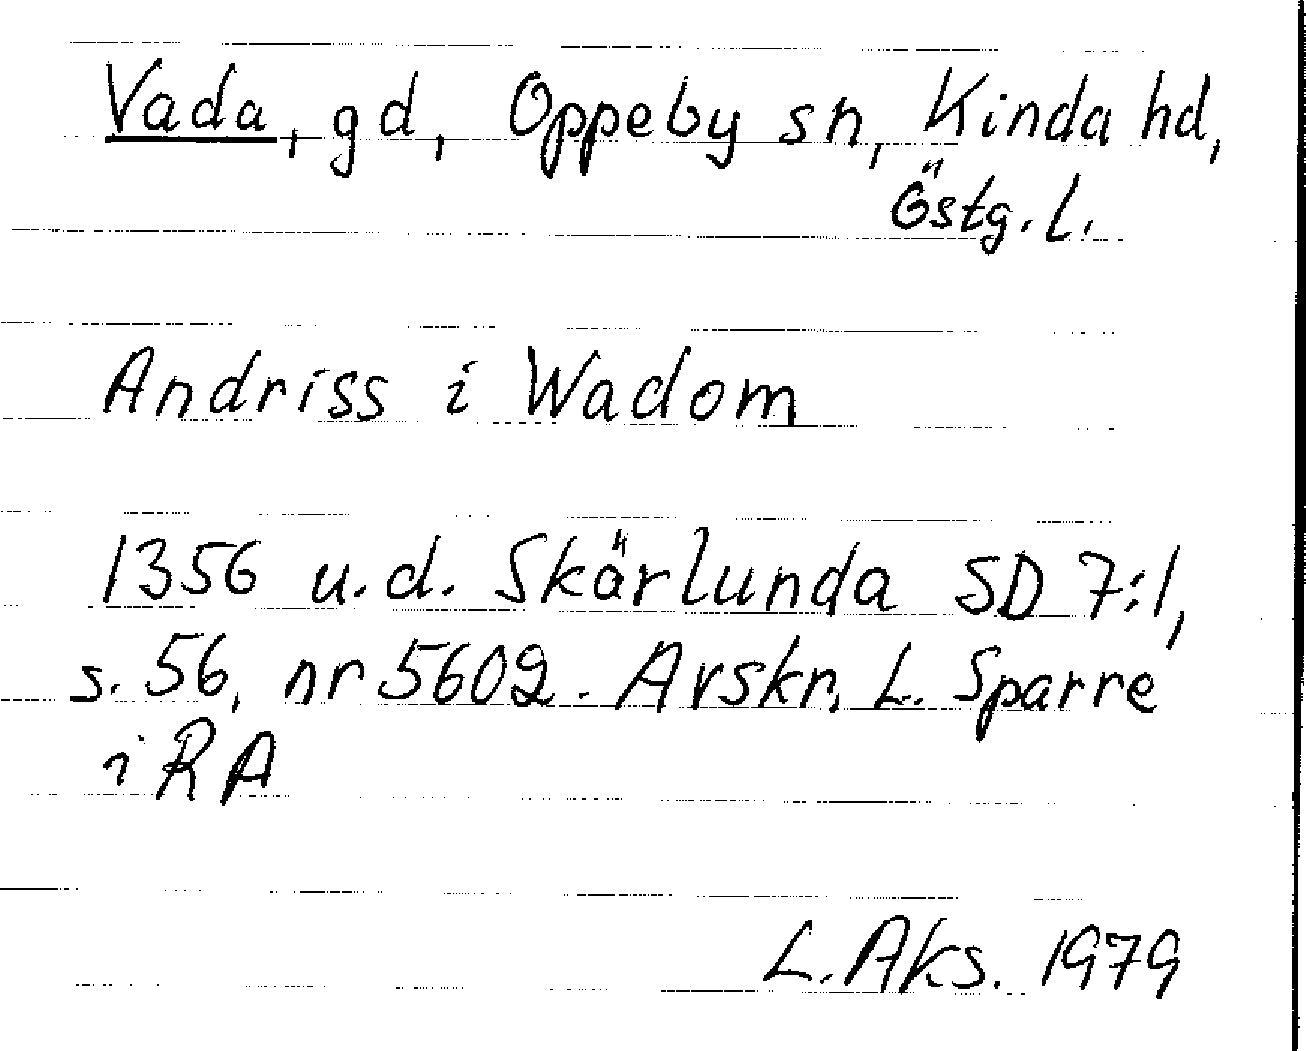 Vada, gd, Oppeby sn, Kinda hd,
Östg. L.
Andriss i Wadom
1356 u.d. Skärlunda SD 7:1,
s. 56, nr 5602. Avskr. L. Sparre
i RA
L. Aks. 1979